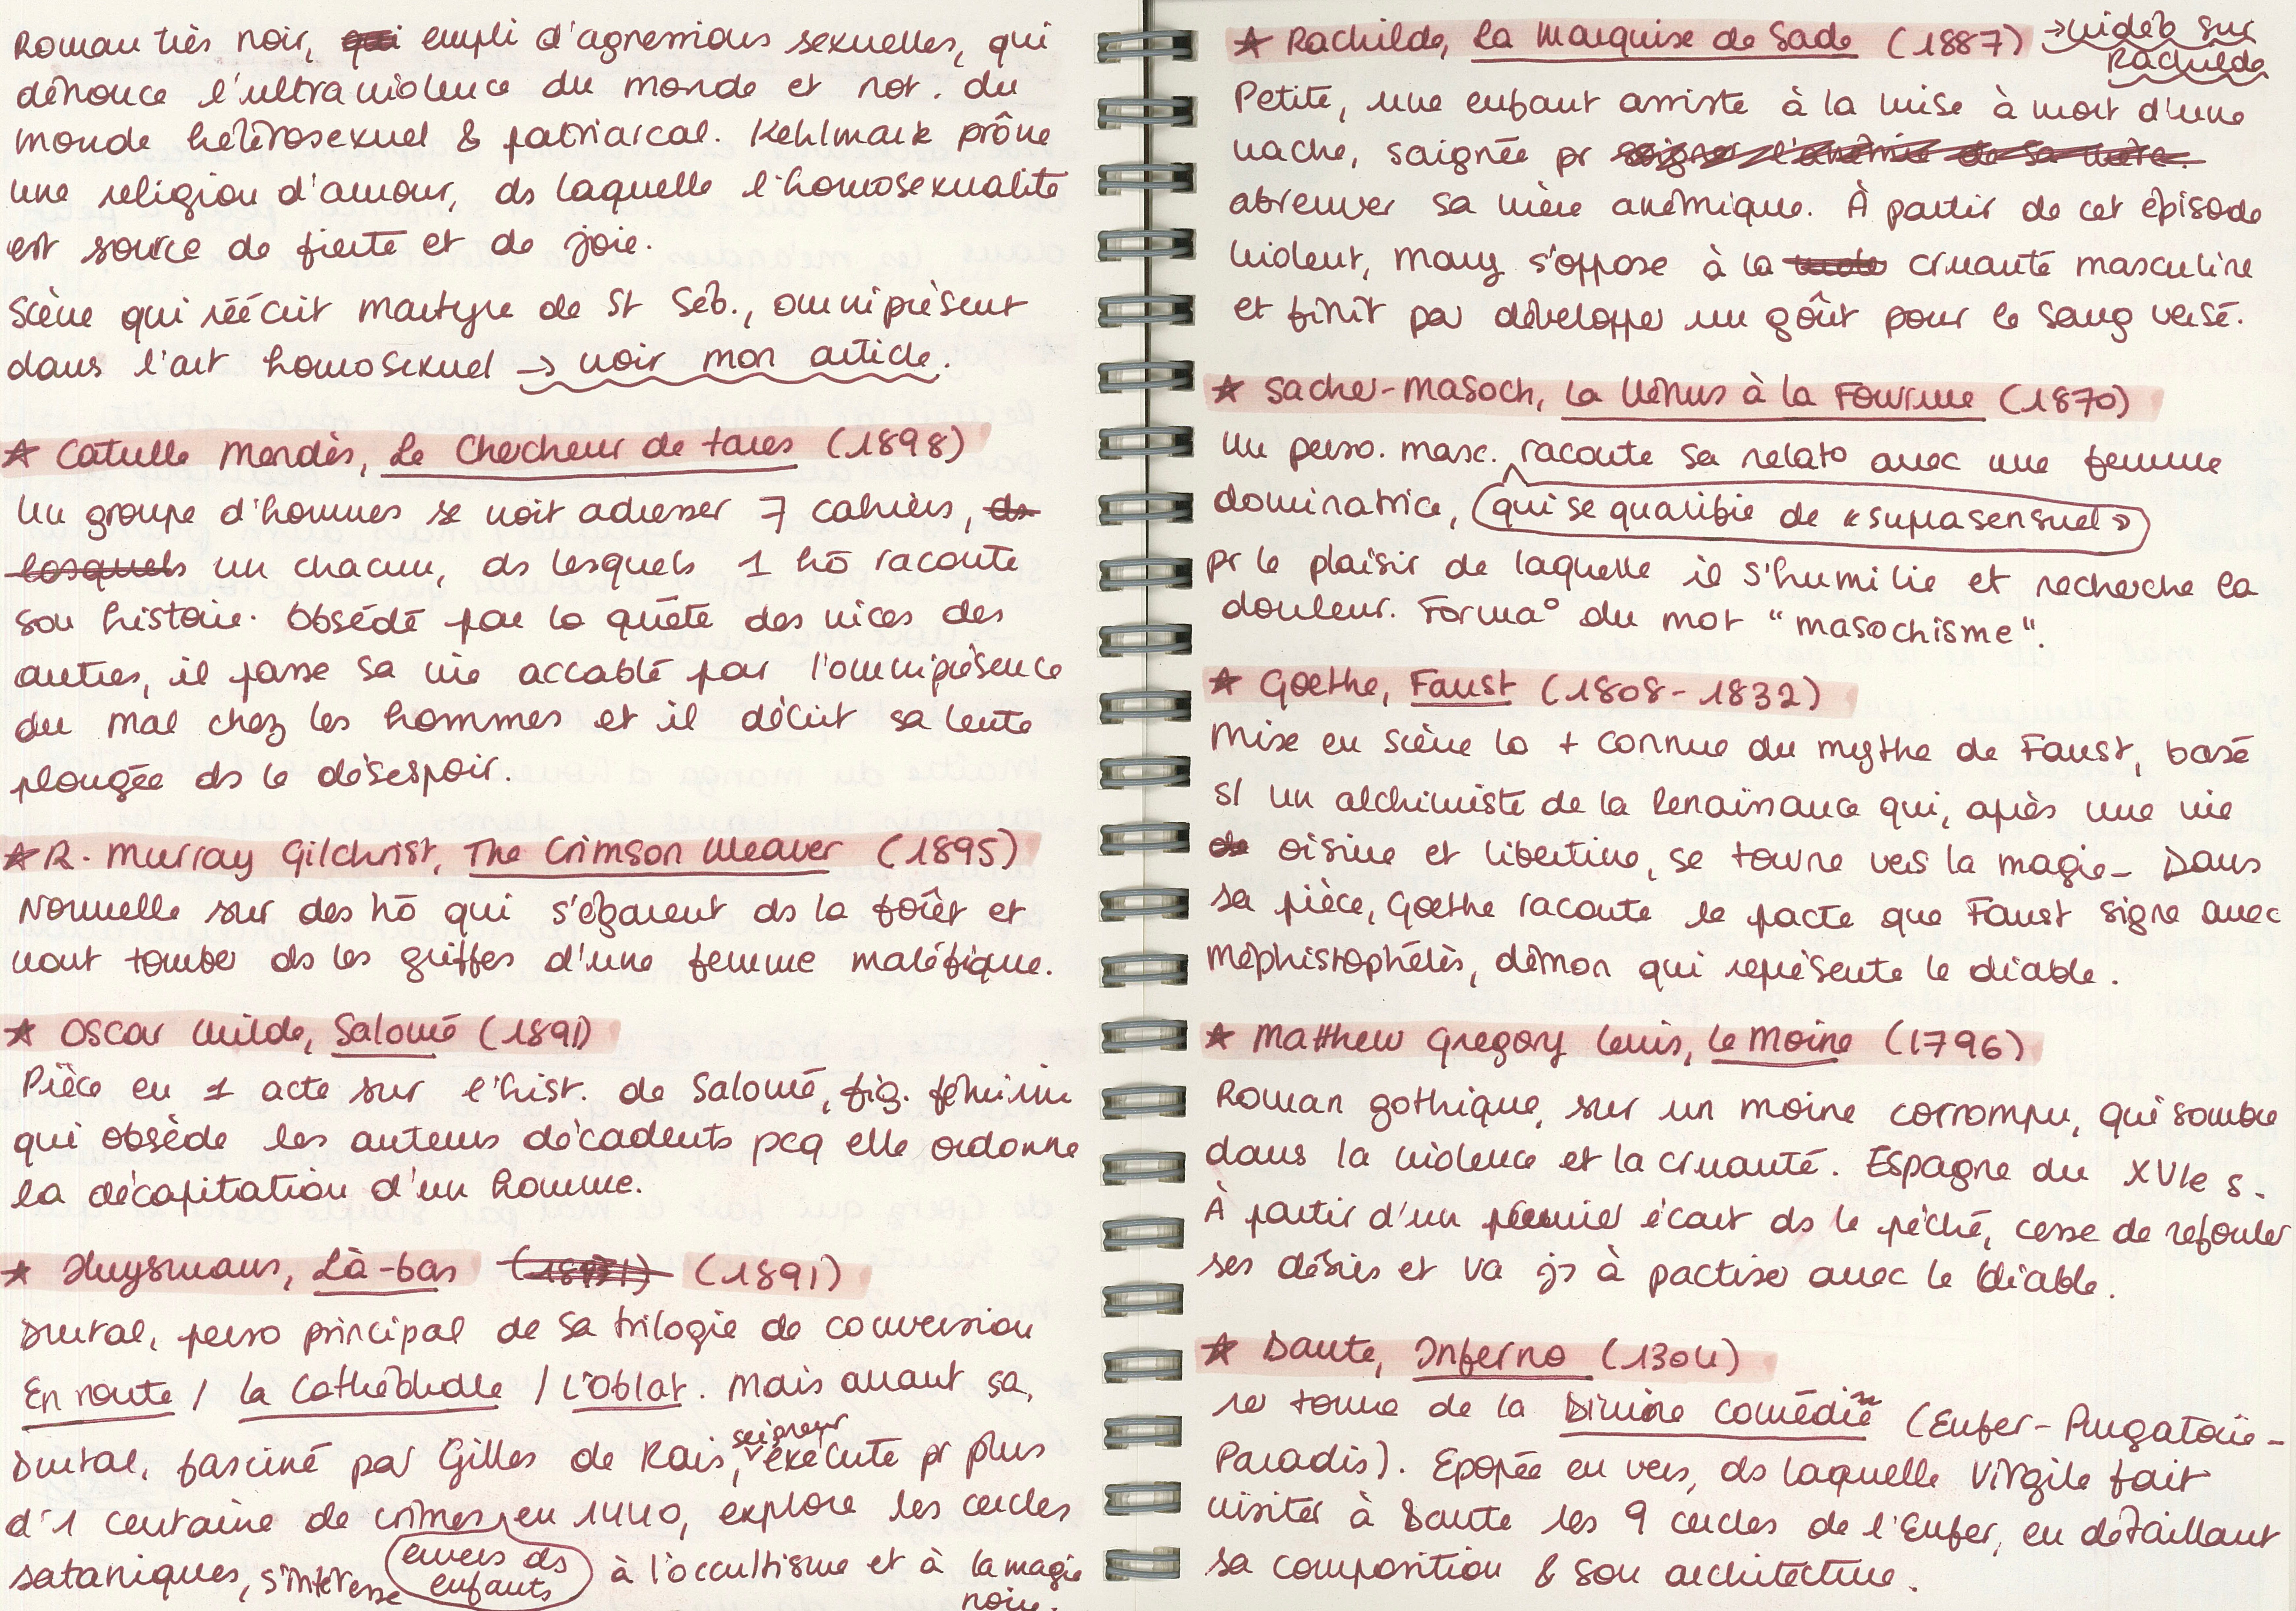 Roman très noir, qui empli d'agressions sexuelles, qui
dénonce l'ultraviolence du monde et not. du
monde hétérosexuel & patriarcal. Kehlmark prône
une religion d'amour, ds laquelle l'homosexualité
est source de fierté et de joie.
Scène qui réécrit martyre de St Séb., omniprésent
dans l'art homosexuel → voir mon article.
★ Catulle Mendès, Le Chercheur de tares (1898)
Un groupe d'hommes se voit adresser 7 cahiers, ds
lesquels un chacun, ds lesquels 1 hō raconte
son histoire. Obsédé par la quête des vices des
autres, il passe sa vie accablé par l'omniprésence
du mal chez les hommes et il décrit sa lente
plongée ds le désespoir.
★ R. Murray Gilchrist, The Crimson Weaver (1895)
Nouvelle sur des hō qui s'égarent ds la forêt et
vont tomber ds les griffes d'une femme maléfique.
★ Oscar Wilde, Salomé (1891)
Pièce en 1 acte sur l'hist. de Salomé, fig. féminine
qui obsède les auteurs décadents pcq elle ordonne
la décapitation d'un homme.
★ Huysmans, Là-bas (1891) (1891)
Durtal, perso principal de sa trilogie de conversion
En route / La Cathédrale / L'Oblat. Mais avant sa,
Durtal, fasciné par Gilles de Rais, seigneur exécuté pr plus
d'1 centaine de crimes envers ds enfants en 1440, explore les cercles
sataniques, s'intéresse à l'occultisme et à la magie
noire.
★ Rachilde, La Marquise de Sade (1887) → vidéo sur
Rachilde
Petite, une enfant assiste à la mise à mort d'une
vache, saignée pr soigner l'anémie de sa mère.
abreuver sa mère anémique. À partir de cet épisode
violent, Mary s'oppose à la cruauté masculine
et finit par développer un goût pour le sang versé.
★ Sacher-Masoch, La Vénus à la Fourrure (1870)
Un perso. masc. raconte sa relat° avec une femme
dominatrice, qui se qualifie de «suprasensuel»
pr le plaisir de laquelle il s'humilie et recherche la
douleur. Forma° du mot "masochisme".
★ Goethe, Faust (1808-1832)
Mise en scène la + connue du mythe de Faust, basé
s/ un alchimiste de la Renaissance qui, après une vie
de oisive et libertine, se tourne vers la magie. Dans
sa pièce, Goethe raconte le pacte que Faust signe avec
Méphistophélès, démon qui représente le diable.
★ Matthew Gregory Lewis, Le Moine (1796)
Roman gothique, sur un moine corrompu, qui sombre
dans la violence et la cruauté. Espagne du XVIe s.
À partir d'un premier écart ds le péché, cesse de refouler
ses désirs et va jsq à pactiser avec le diable.
★ Dante, Inferno (1304)
1e tome de la Divine Comédie (Enfer-Purgatoire-
Paradis). Epopée en vers, ds laquelle Virgile fait
visiter à Dante les 9 cercles de l'Enfer, en détaillant
sa composition & son architecture.